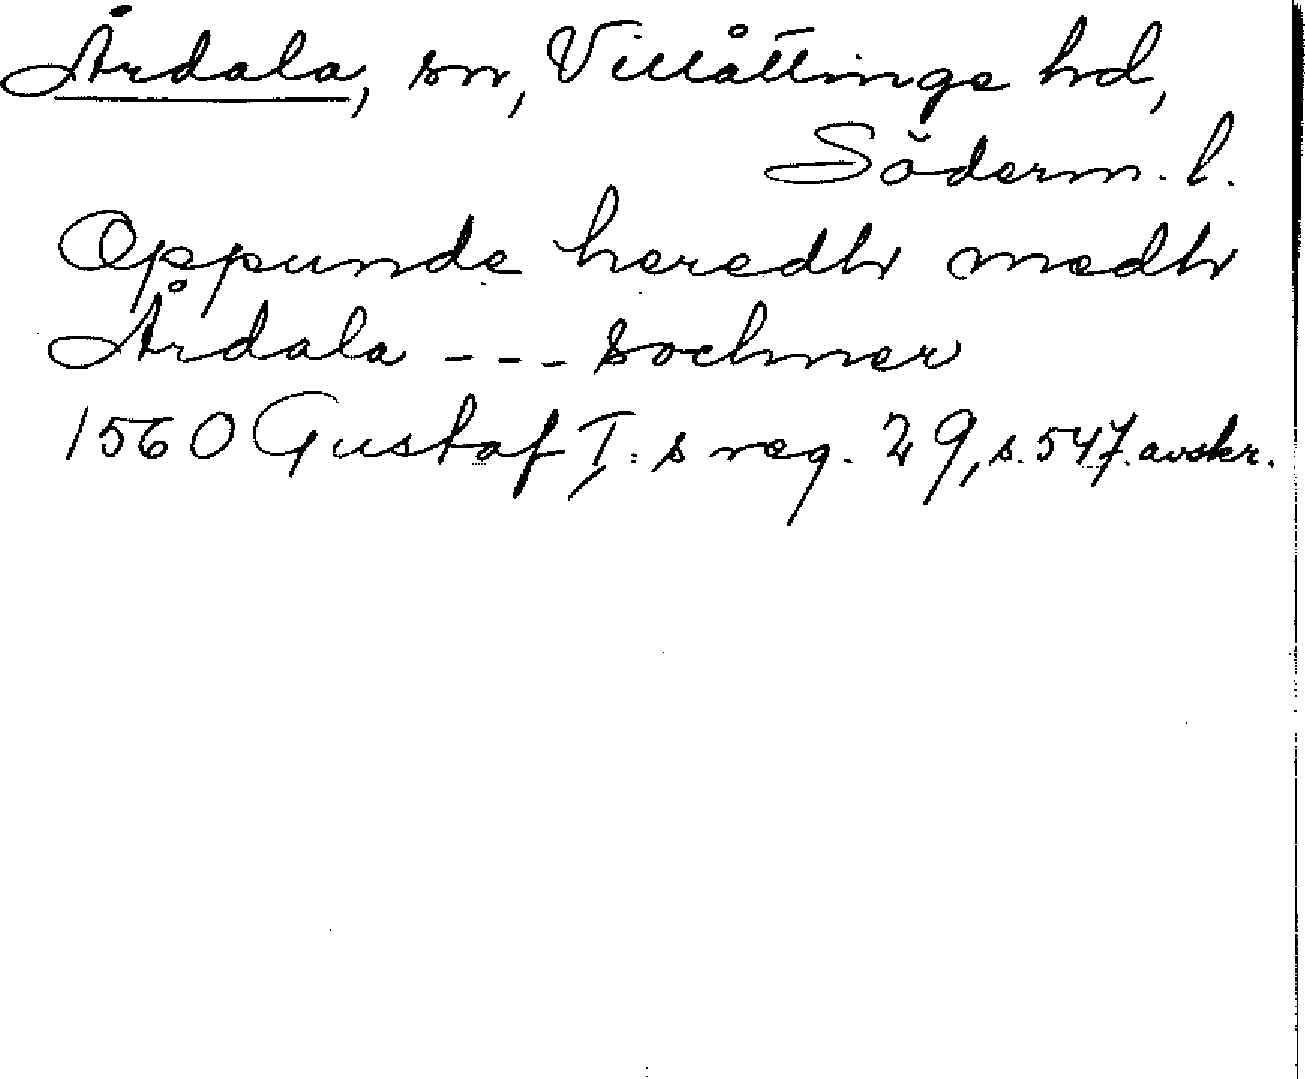 Årdala, sn, Villåttinge hd,
Söderm. l.
Oppunde heredh medh
Årdala --- sochner
1560 Gustaf I:s reg. 29, s. 547. avskr.